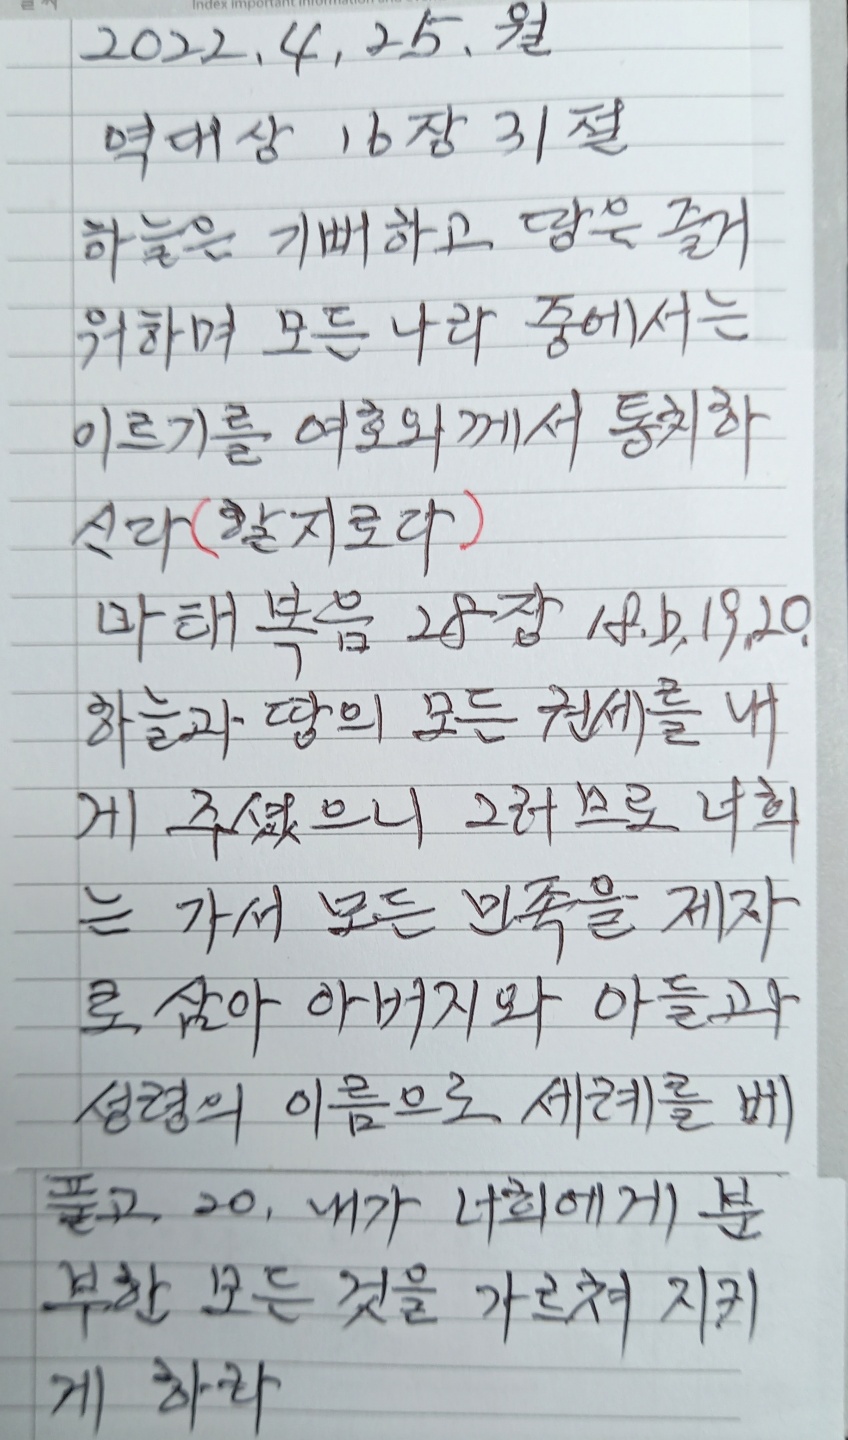 Index important information and
2022. 4. 25. 월
역대상 16장 31절
하늘은 기뻐하고 땅은 즐거
워하며 모든 나라 중에서는
이르기를 여호와께서 통치하
신다(할지로다)
마태복음 28장 18.b, 19, 20.
하늘과 땅의 모든 권세를 내
게 주셨으니 그러므로 너희
는 가서 모든 민족을 제자
로 삼아 아버지와 아들과
성령의 이름으로 세례를 베
풀고 20. 내가 너희에게 분
부한 모든 것을 가르쳐 지키
게 하라